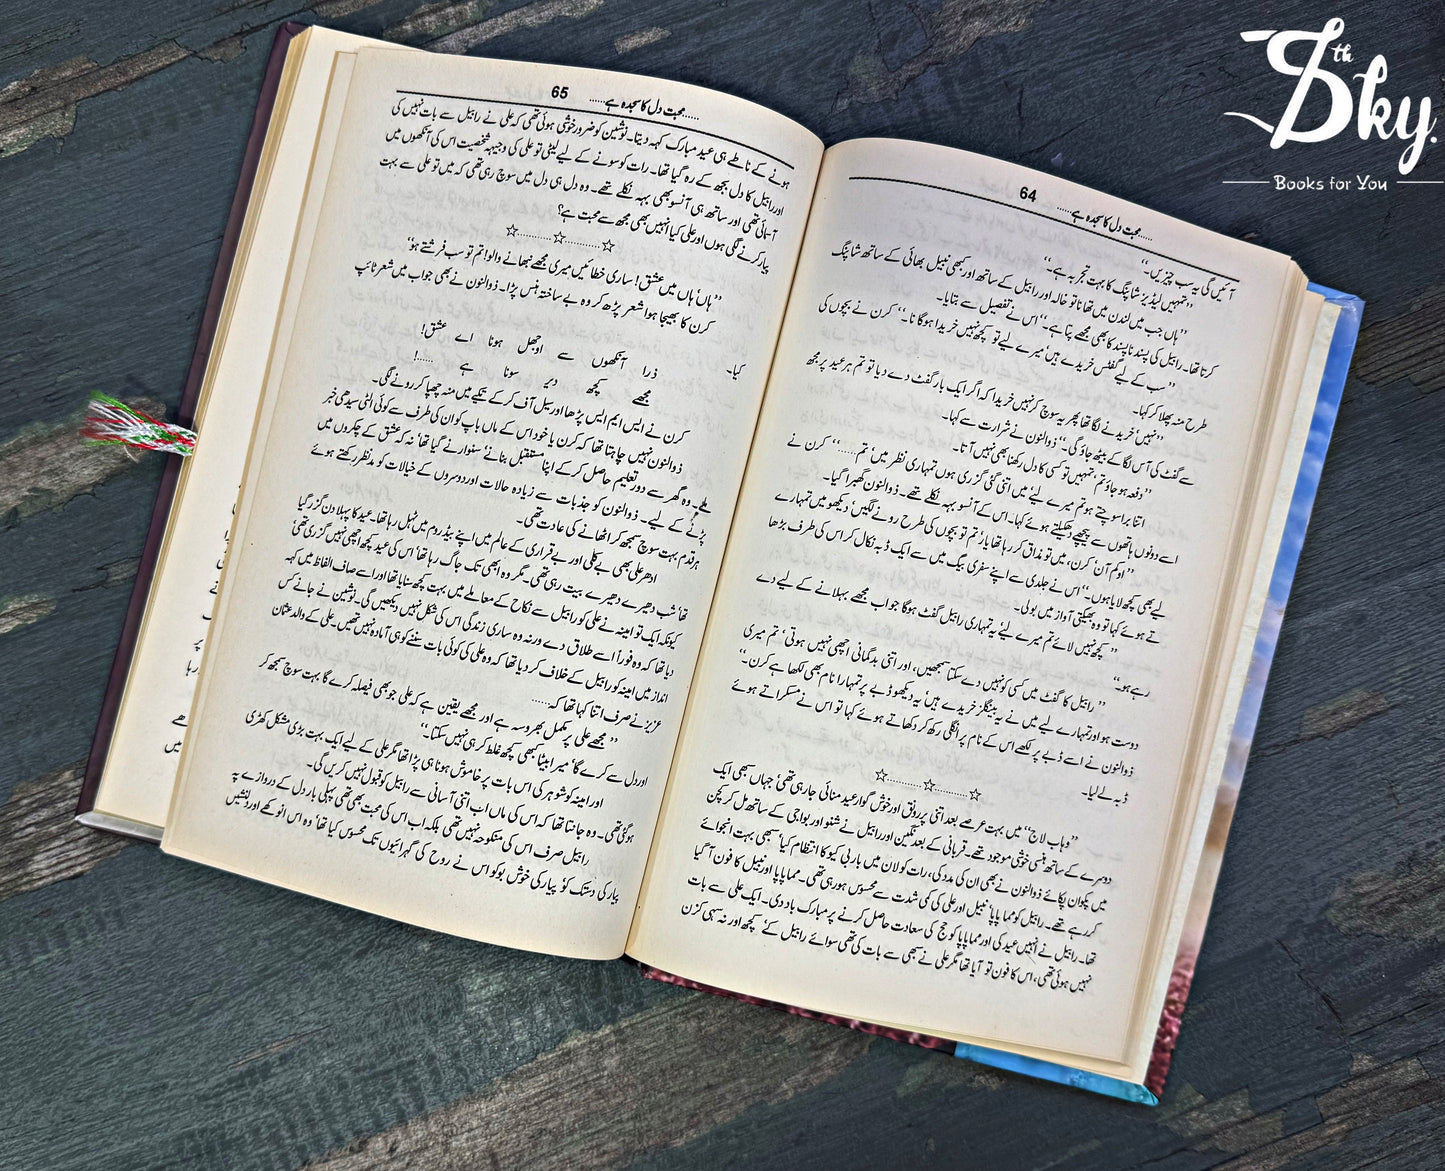 7th Sky.
Books for You
64
محبت دل کا سجدہ ہے......
آئیں گی یہ سب چیزیں۔‘‘
’’تمہیں لیڈیز شاپنگ کا بہت تجربہ ہے۔‘‘
’’ہاں جب میں لندن میں تھا نا تو خالہ اور رابیل کے ساتھ اور کبھی نبیل بھائی کے ساتھ شاپنگ
کرتا تھا۔ رابیل کی پسند ناپسند کا بھی مجھے پتا ہے۔‘‘ اس نے تفصیل سے بتایا۔
’’سب کے لیے گفٹس خریدے ہیں‘ میرے لیے تو کچھ نہیں خریدا ہوگا نا۔‘‘ کرن نے بچوں کی
طرح منہ پھلا کر کہا۔
’’نہیں‘ خریدنے لگا تھا پھر یہ سوچ کر نہیں خریدا کہ اگر ایک بار گفٹ دے دیا تو تم ہر عید پر مجھ
سے گفٹ کی آس لگا کے بیٹھ جاؤ گی۔‘‘ ذوالنون نے شرارت سے کہا۔
’’دفعہ ہو جاؤ تم‘ تمہیں تو کسی کا دل رکھنا بھی نہیں آتا۔
اتنا برا سوچتے ہو تم میرے لیے‘ میں اتنی گئی گزری ہوں تمہاری نظر میں‘ تم......‘‘ کرن نے
اسے دونوں ہاتھوں سے پیچھے دھکیلتے ہوئے کہا۔ اس کے آنسو بہہ نکلے تھے۔ ذوالنون گھبرا گیا۔
’’اوکم آن‘ کرن‘ میں تو مذاق کر رہا تھا یار‘ تم تو بچوں کی طرح رونے لگیں‘ دیکھو میں تمہارے
لیے بھی کچھ لایا ہوں۔‘‘ اس نے جلدی سے اپنے سفری بیگ میں سے ایک ڈبہ نکال کر اس کی طرف بڑھا
تے ہوئے کہا تو وہ بھیگتی آواز میں بولی۔
’’کچھ نہیں لائے تم میرے لیے‘ یہ تمہاری رابیل گفٹ ہوگا جو اب مجھے بہلانے کے لیے دے
رہے ہو۔‘‘
’’رابیل کا گفٹ میں کسی کو نہیں دے سکتا سمجھیں، اور اتنی بدگمانی اچھی نہیں ہوتی‘ تم میری
دوست ہو اور تمہارے لیے میں نے یہ بینگلز خریدے ہیں‘ یہ دیکھو ڈبے پر تمہارا نام بھی لکھا ہے کرن۔‘‘
ذوالنون نے اسے ڈبے پر لکھے اس کے نام پر انگلی رکھ کر دکھاتے ہوئے کہا تو اس نے مسکراتے ہوئے
ڈبہ لے لیا۔
☆............☆............☆
’’وہاب لاج‘‘ میں بہت عرصے بعد اتنی پر رونق اور خوش گوار عید منائی جا رہی تھی‘ جہاں سبھی ایک
دوسرے کے ساتھ ہنسی خوشی موجود تھے۔ قربانی کے بعد نگین اور رابیل نے شنو اور بوا جی کے ساتھ مل کر کچن
میں پکوان پکائے‘ ذوالنون نے بھی ان کی مدد کی، رات کو لان میں باربی کیو کا انتظام کیا‘ سبھی بہت انجوائے
کر رہے تھے۔ رابیل کو مما پاپا‘ نبیل اور علی کی کمی شدت سے محسوس ہو رہی تھی۔ مما پاپا اور نبیل کا فون آ گیا
تھا۔ رابیل نے انہیں عید کی اور مما پاپا کو حج کی سعادت حاصل کرنے پر مبارک باد دی۔ ایک علی سے بات
نہیں ہوئی تھی، اس کا فون تو آیا تھا مگر علی نے سبھی سے بات کی تھی سوائے رابیل کے‘ کچھ اور نہ سہی کزن
65
محبت دل کا سجدہ ہے......
ہونے کے ناطے ہی عید مبارک کہہ دیتا۔ نوشین کو ضرور خوشی ہوئی تھی کہ علی نے رابیل سے بات نہیں کی
اور رابیل کا دل بجھ کے رہ گیا تھا۔ رات کو سونے کے لیے لیٹی تو علی کی وجیہہ شخصیت اس کی آنکھوں میں
آسمائی تھی اور ساتھ ہی آنسو بھی بہہ نکلے تھے۔ وہ دل ہی دل میں سوچ رہی تھی کہ میں تو علی سے بہت
پیار کرنے لگی ہوں اور علی کیا انہیں بھی مجھ سے محبت ہے؟
☆............☆............☆
’’ہاں‘ ہاں میں عشق! ساری خطائیں میری مجھے نبھانے والو! تم تو سب فرشتے ہو‘‘
کرن کا بھیجا ہوا شعر پڑھ کر وہ بے ساختہ ہنس پڑا۔ ذوالنون نے بھی جواب میں شعر ٹائپ
کیا۔
ذرا آنکھوں سے اوجھل ہونا اے عشق!
مجھے کچھ دیر سونا ہے ......!
کرن نے ایس ایم ایس پڑھا اور سیل آف کر کے تکیے میں منہ چھپا کر رونے لگی۔
ذوالنون نہیں چاہتا تھا کہ کرن یا خود اس کے ماں باپ کو ان کی طرف سے کوئی الٹی سیدھی خبر
ملے۔ وہ گھر سے دور تعلیم حاصل کر کے اپنا مستقبل بنانے‘ سنوارنے گیا تھا‘ نہ کہ عشق کے چکروں میں
پڑنے کے لیے۔ ذوالنون کو جذبات سے زیادہ حالات اور دوسروں کے خیالات کو مدنظر رکھتے ہوئے
ہر قدم بہت سوچ سمجھ کر اٹھانے کی عادت تھی۔
ادھر علی بھی بے کلی اور بے قراری کے عالم میں اپنے بیڈ روم میں ٹہل رہا تھا۔ عید کا پہلا دن گزر گیا
تھا‘ شب دھیرے دھیرے بیت رہی تھی۔ مگر وہ ابھی تک جاگ رہا تھا‘ اس کی عید کچھ اچھی نہیں گزری تھی‘
کیونکہ ایک تو امینہ نے علی کو رابیل سے نکاح کے معاملے میں بہت کچھ سنایا تھا اور اسے صاف الفاظ میں کہہ
دیا تھا کہ وہ فوراً اسے طلاق دے ورنہ وہ ساری زندگی اس کی شکل نہیں دیکھیں گی۔ نوشین نے جانے کس
انداز میں امینہ کو رابیل کے خلاف کر دیا تھا کہ وہ علی کی کوئی بات سننے کو ہی آمادہ نہیں تھیں۔ علی کے والد عثمان
عزیز نے صرف اتنا کہا تھا کہ......
’’مجھے علی پر مکمل بھروسہ ہے اور مجھے یقین ہے کہ علی جو بھی فیصلہ کرے گا بہت سوچ سمجھ کر
اور دل سے کرے گا‘ میرا بیٹا کبھی کچھ غلط کر ہی نہیں سکتا۔‘‘
اور امینہ کو شوہر کی اس بات پر خاموش ہونا ہی پڑا تھا مگر علی کے لیے ایک بہت بڑی مشکل کھڑی
ہو گئی تھی۔ وہ جانتا تھا کہ اس کی ماں اب اتنی آسانی سے رابیل کو قبول نہیں کریں گی۔
رابیل صرف اس کی منکوحہ نہیں تھی بلکہ اب اس کی محبت بھی تھی‘ پہلی بار دل کے دروازے پہ
پیار کی دستک کو‘ پیار کی خوش بو کو اس نے روح کی گہرائیوں تک محسوس کیا تھا‘ وہ اس انوکھے اور دلنشیں